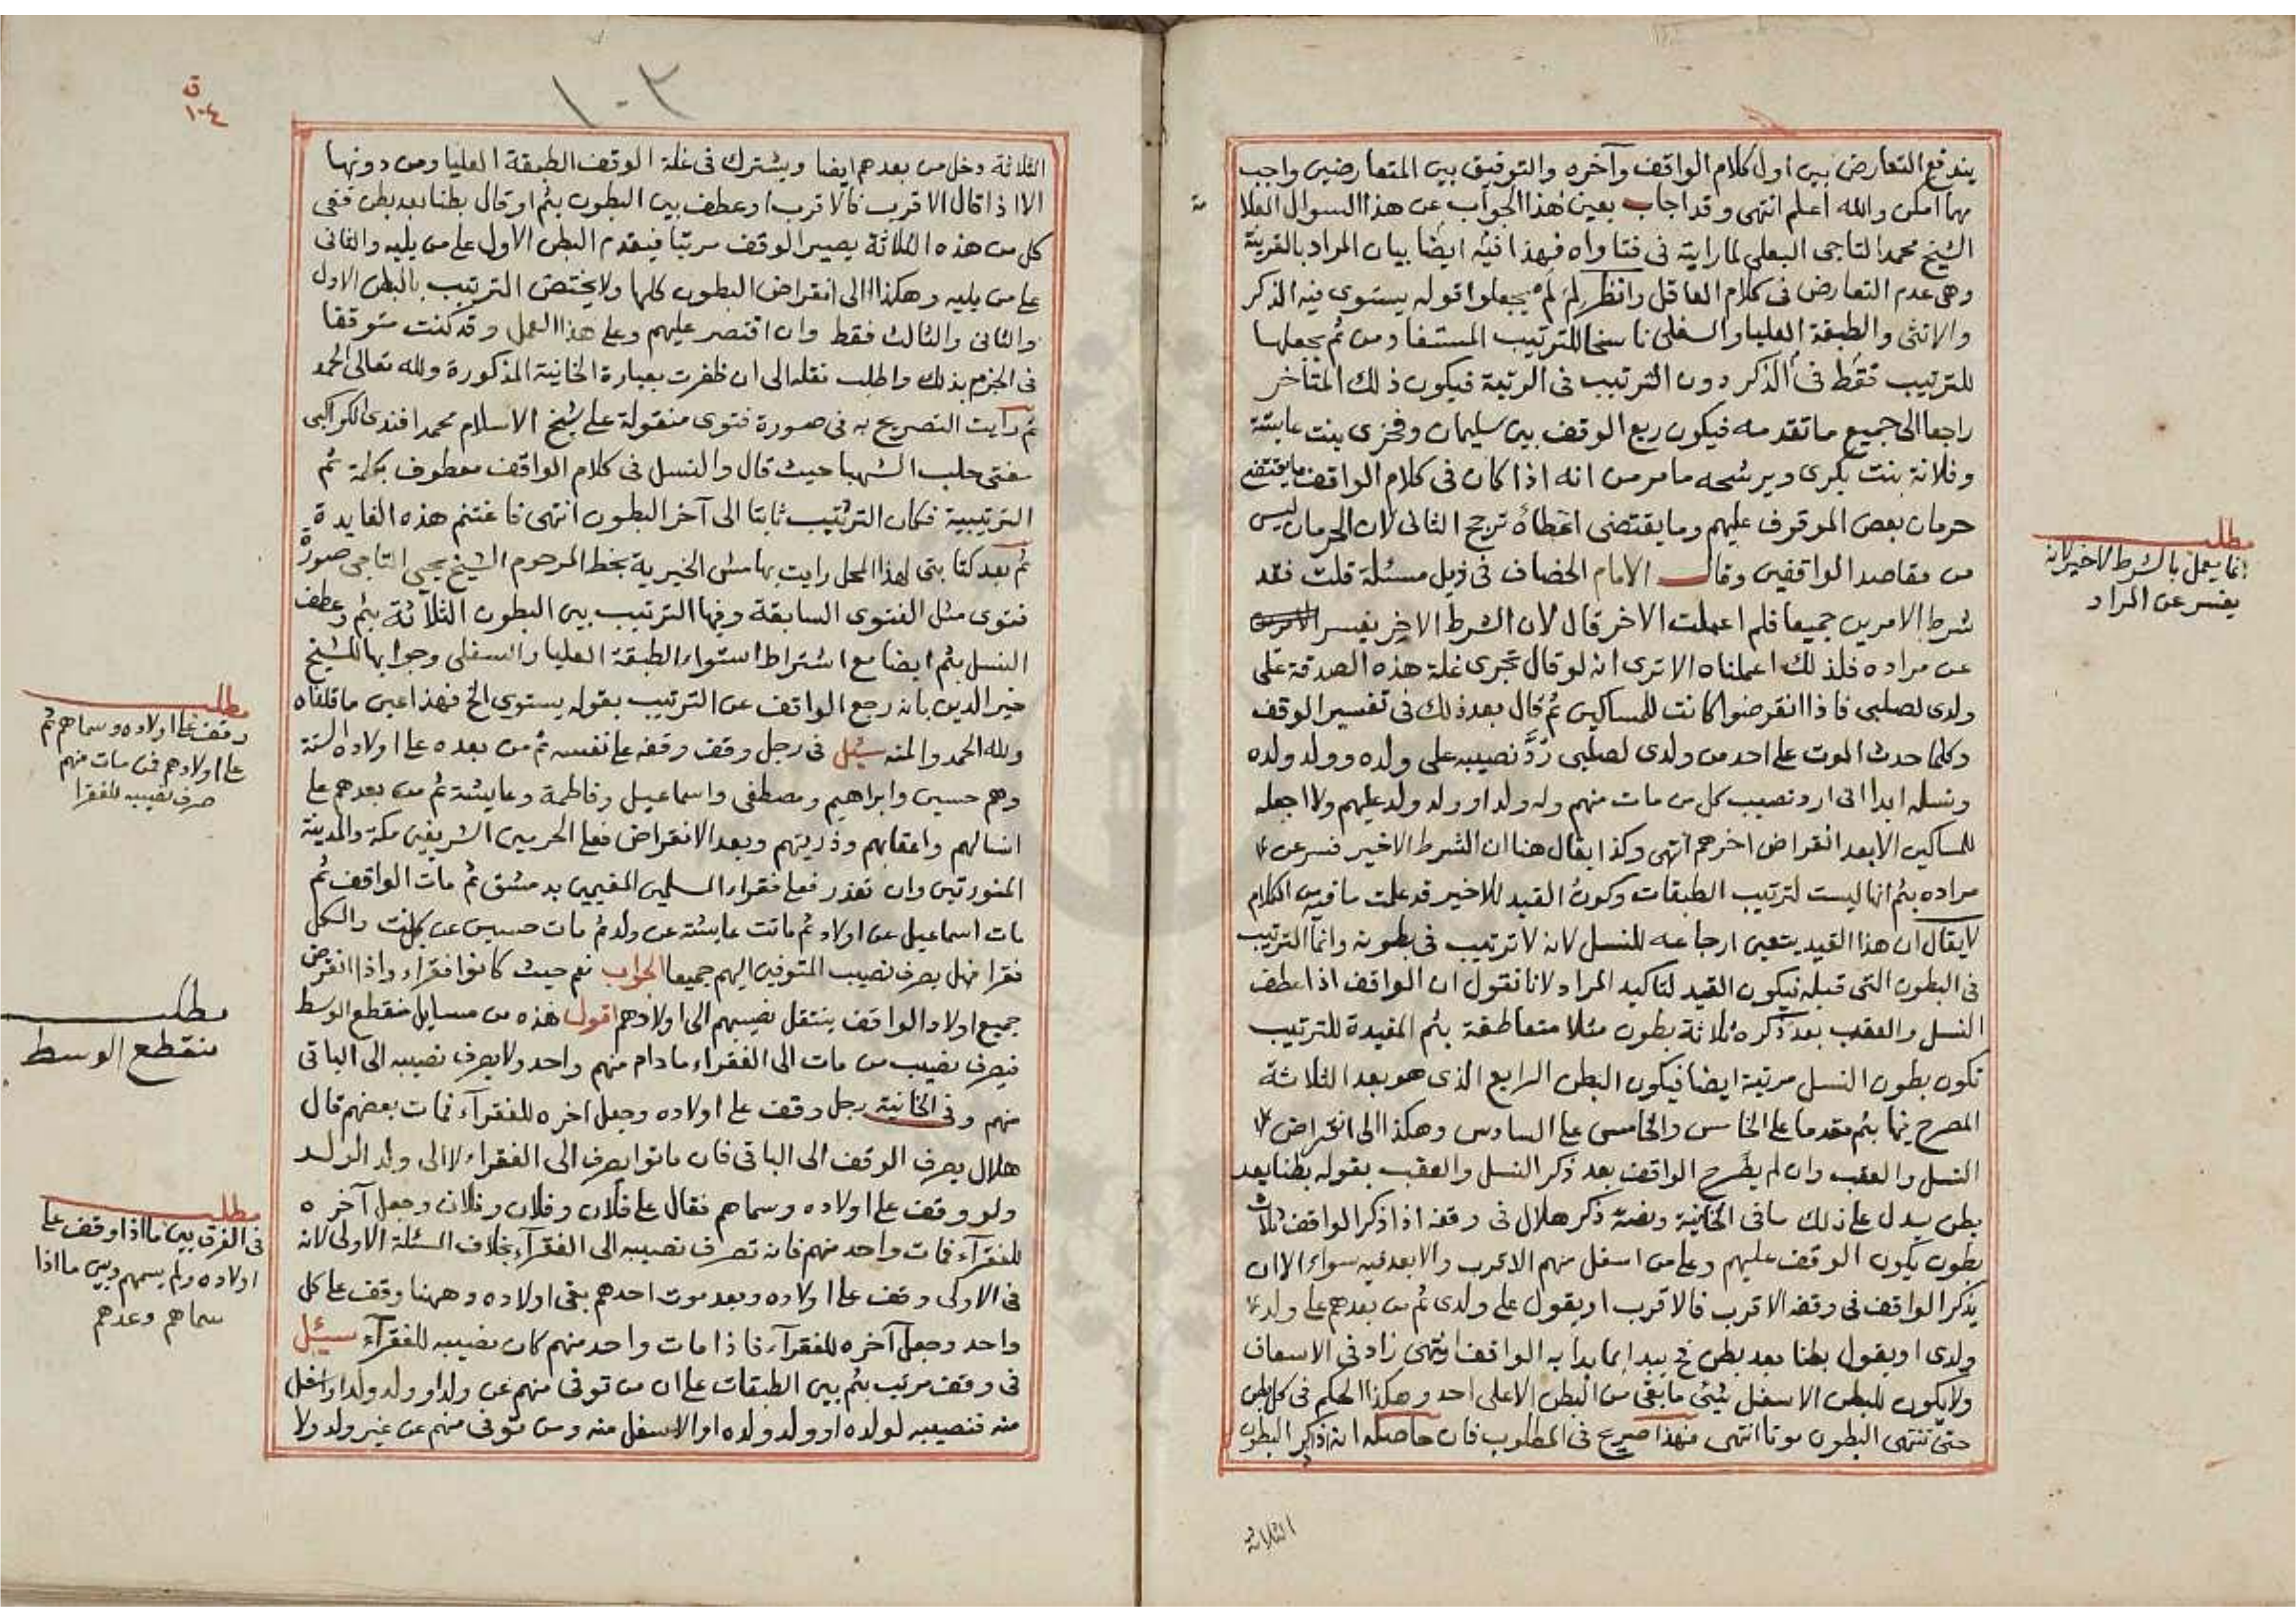 يندفع التعارض بين اول كلام الواقف وآخره والتوفيق بين المتعارضين واجب
مهما امكن والله اعلم انتهى وقد اجاب بعين هذا الجواب عن هذا السوال العلا
مة
الشيخ محمد التاجى البعلى لما رايته فى فتاواه فهذا فيه ايضا بيان المراد بالقرينة
وهى عدم التعارض فى كلام العاقل وانظر لم لم يجعلوا قوله يستوى فيه الذكر
والانثى والطبقة العليا والسفلى ناسخا للترتيب المستفاد من ثم بجعلها
للترتيب فقط فى الذكر دون الترتيب فى الرتبة فيكون ذلك المتأخر
راجعا الى جميع ما تقدمه فيكون ريع الوقف بين سليمان وفخرى بنت عايشة
وفلانة بنت بكرى ويرشحه ما مر من انه اذا كان فى كلام الواقف ما يقتضى
حرمان بعض الموقوف عليهم وما يقتضى اعطاه ترجح الثانى لان الحرمان ليس
من مقاصد الواقفين وقال الامام الخصاف فى ذيل مسئلة قلت فقد
شرط الامرين جميعا فلم اعملت الاخر قال لان الشرط الاخر يفسر
عن مراده فلذلك اعملناه الا ترى انه لو قال تجرى غلة هذه الصدقة على
ولدى لصلبى فاذا انقرضوا كانت للمساكين ثم قال بعد ذلك فى تفسير الوقف
وكلما حدث الموت على احد من ولدى لصلبى رُدَّ نصيبه على ولده وولد ولده
ونسله ابدا انى ارد نصيب كل من مات منهم وله ولد او ولد ولد عليهم ولا اجعله
للمساكين الا بعد انقراض اخرهم انتهى وكذا يقال هنا ان الشرط الاخير فسر عن
مراده بثم انها ليست لترتيب الطبقات وكون القيد للاخير قد علمت ما فيه من الكلام
لا يقال ان هذا القيد يتعين ارجاعه للنسل لانه لا ترتيب فى بطونه وانما الترتيب
فى البطون التى قبله فيكون القيد لتاكيد المراد لانا نقول ان الواقف اذا عطف
النسل والعقب بعد ذكره ثلاثة بطون مثلا متعاطفة بثم المفيدة للترتيب
تكون بطون النسل مرتبة ايضا فيكون البطن الرابع الذى هو بعد الثلاثة
المصرح فيها بثم مقدما على الخامس والخامس على السادس وهكذا الى انقراض
النسل والعقب وان لم يصرح الواقف بعد ذكر النسل والعقب بقوله بطنا بعد
بطن يدل على ذلك ما فى الخانية ونصه ذكر هلال فى وقفه اذا ذكر الواقف ثلاث
بطون يكون الوقف عليهم وعلى من اسفل منهم الاقرب والابعد فيه سواء الا ان
يذكر الواقف فى وقفه الاقرب فالاقرب او يقول على ولدى ثم من بعدهم على ولد
ولدى او يقول بطنا بعد بطن فح يبدا بما بدا به الواقف انتهى زاد فى الاسعاف
ولا يكون للبطن الاسفل شئ ما بقى من البطن الاعلى احد وهكذا الحكم فى كل بطن
حتى تنتهى البطون موتا انتهى فهذا صريح فى المطلوب فان حاصله انه اذا ذكر البطون
الثلاثة
مطلب
انما يعمل بالشرط الاخير لانه
يفسر عن المراد
ق
١٠٤
١٠٣
الثلاثة دخل من بعدهم ايضا ويشترك فى غلة الوقف الطبقة العليا ومن دونها
الا اذا قال الاقرب فالاقرب او عطف بين البطون بثم او قال بطنا بعد بطن ففى
كل من هذه الثلاثة يصير الوقف مرتبا فيقدم البطن الاول على من يليه والثانى
على من يليه وهكذا الى انقراض البطون كلها ولا يختص الترتيب بالبطن الاول
والثانى والثالث فقط وان اقتصر عليهم وعلى هذا العمل وقد كنت متوقفا
فى الجزم بذلك واطلب نقله الى ان ظفرت بعبارة الخانية المذكورة ولله تعالى الحمد
ثم رايت التصريح به فى صورة فتوى منقولة على شيخ الاسلام محمد افندى الكواكبى
مفتى حلب الشهبا حيث قال والنسل فى كلام الواقف معطوف بكلمة ثم
الترتيبية فكان الترتيب ثابتا الى آخر البطون انتهى فاغتنم هذه الفايدة
ثم بعد كتابتى لهذا المحل رايت بهامش الخيرية بخط المرحوم الشيخ يحيى التاجى صورة
فتوى مثل الفتوى السابقة وفيها الترتيب بين البطون الثلاثة بثم وعطف
النسل بثم ايضا مع اشتراط استواء الطبقة العليا والسفلى وجوابها للشيخ
خير الدين بانه رجع الواقف عن الترتيب بقوله يستوى الخ فهذا عين ما قلناه
ولله الحمد والمنه سئل فى رجل وقف وقفه على نفسه ثم من بعده على اولاده الستة
وهم حسين وابراهيم ومصطفى واسماعيل وفاطمة وعايشة ثم من بعدهم على
انسالهم واعقابهم وذريتهم وبعد الانقراض فعلى الحرمين الشريفين مكة والمدينة
المنورتين وان تعذر فعلى فقراء المسلمين المقيمين بدمشق ثم مات الواقف ثم
مات اسماعيل عن اولاد ثم ماتت عايشة عن ولد ثم مات حسين عن بنت والكل
فقرا فهل يصرف نصيب المتوفين اليهم جميعا الجواب نعم حيث كانوا فقراء واذا انقرض
جميع اولاد الواقف ينتقل نصيبهم الى اولادهم اقول هذه من مسايل منقطع الوسط
فيصرف نصيب من مات الى الفقراء ما دام منهم واحد ولا يصرف نصيبه الى الباقى
منهم وفى الخانية رجل وقف على اولاده وجعل اخره للفقرآء فمات بعضهم قال
هلال يصرف الوقف الى الباقى فان ماتوا يصرف الى الفقراء لا الى ولد الولد
ولو وقف على اولاده وسماهم فقال على فلان وفلان وفلان وجعل آخره
للفقرآء فمات واحد منهم فانه تصرف نصيبه الى الفقرآء بخلاف المسئلة الاولى لانه
فى الاولى وقف على اولاده وبعد موت احدهم بقى اولاده وههنا وقف على كل
واحد وجعل آخره للفقرآء فاذا مات واحد منهم كان نصيبه للفقرآء سئل
فى وقف مرتب بثم بين الطبقات على ان من توفى منهم عن ولد او ولد ولد او اسفل
منه فنصيبه لولده او ولد ولده او الاسفل منه ومن توفى منهم عن غير ولد ولا
مطلب
وقف على اولاده وسماهم ثم
على اولادهم فمن مات منهم
صرف نصيبه للفقرا
مطلب
منقطع الوسط
مطلب
فى الفرق بين ما اذا وقف على
اولاده ولم يسمهم وبين ما اذا
سماهم وعدهم